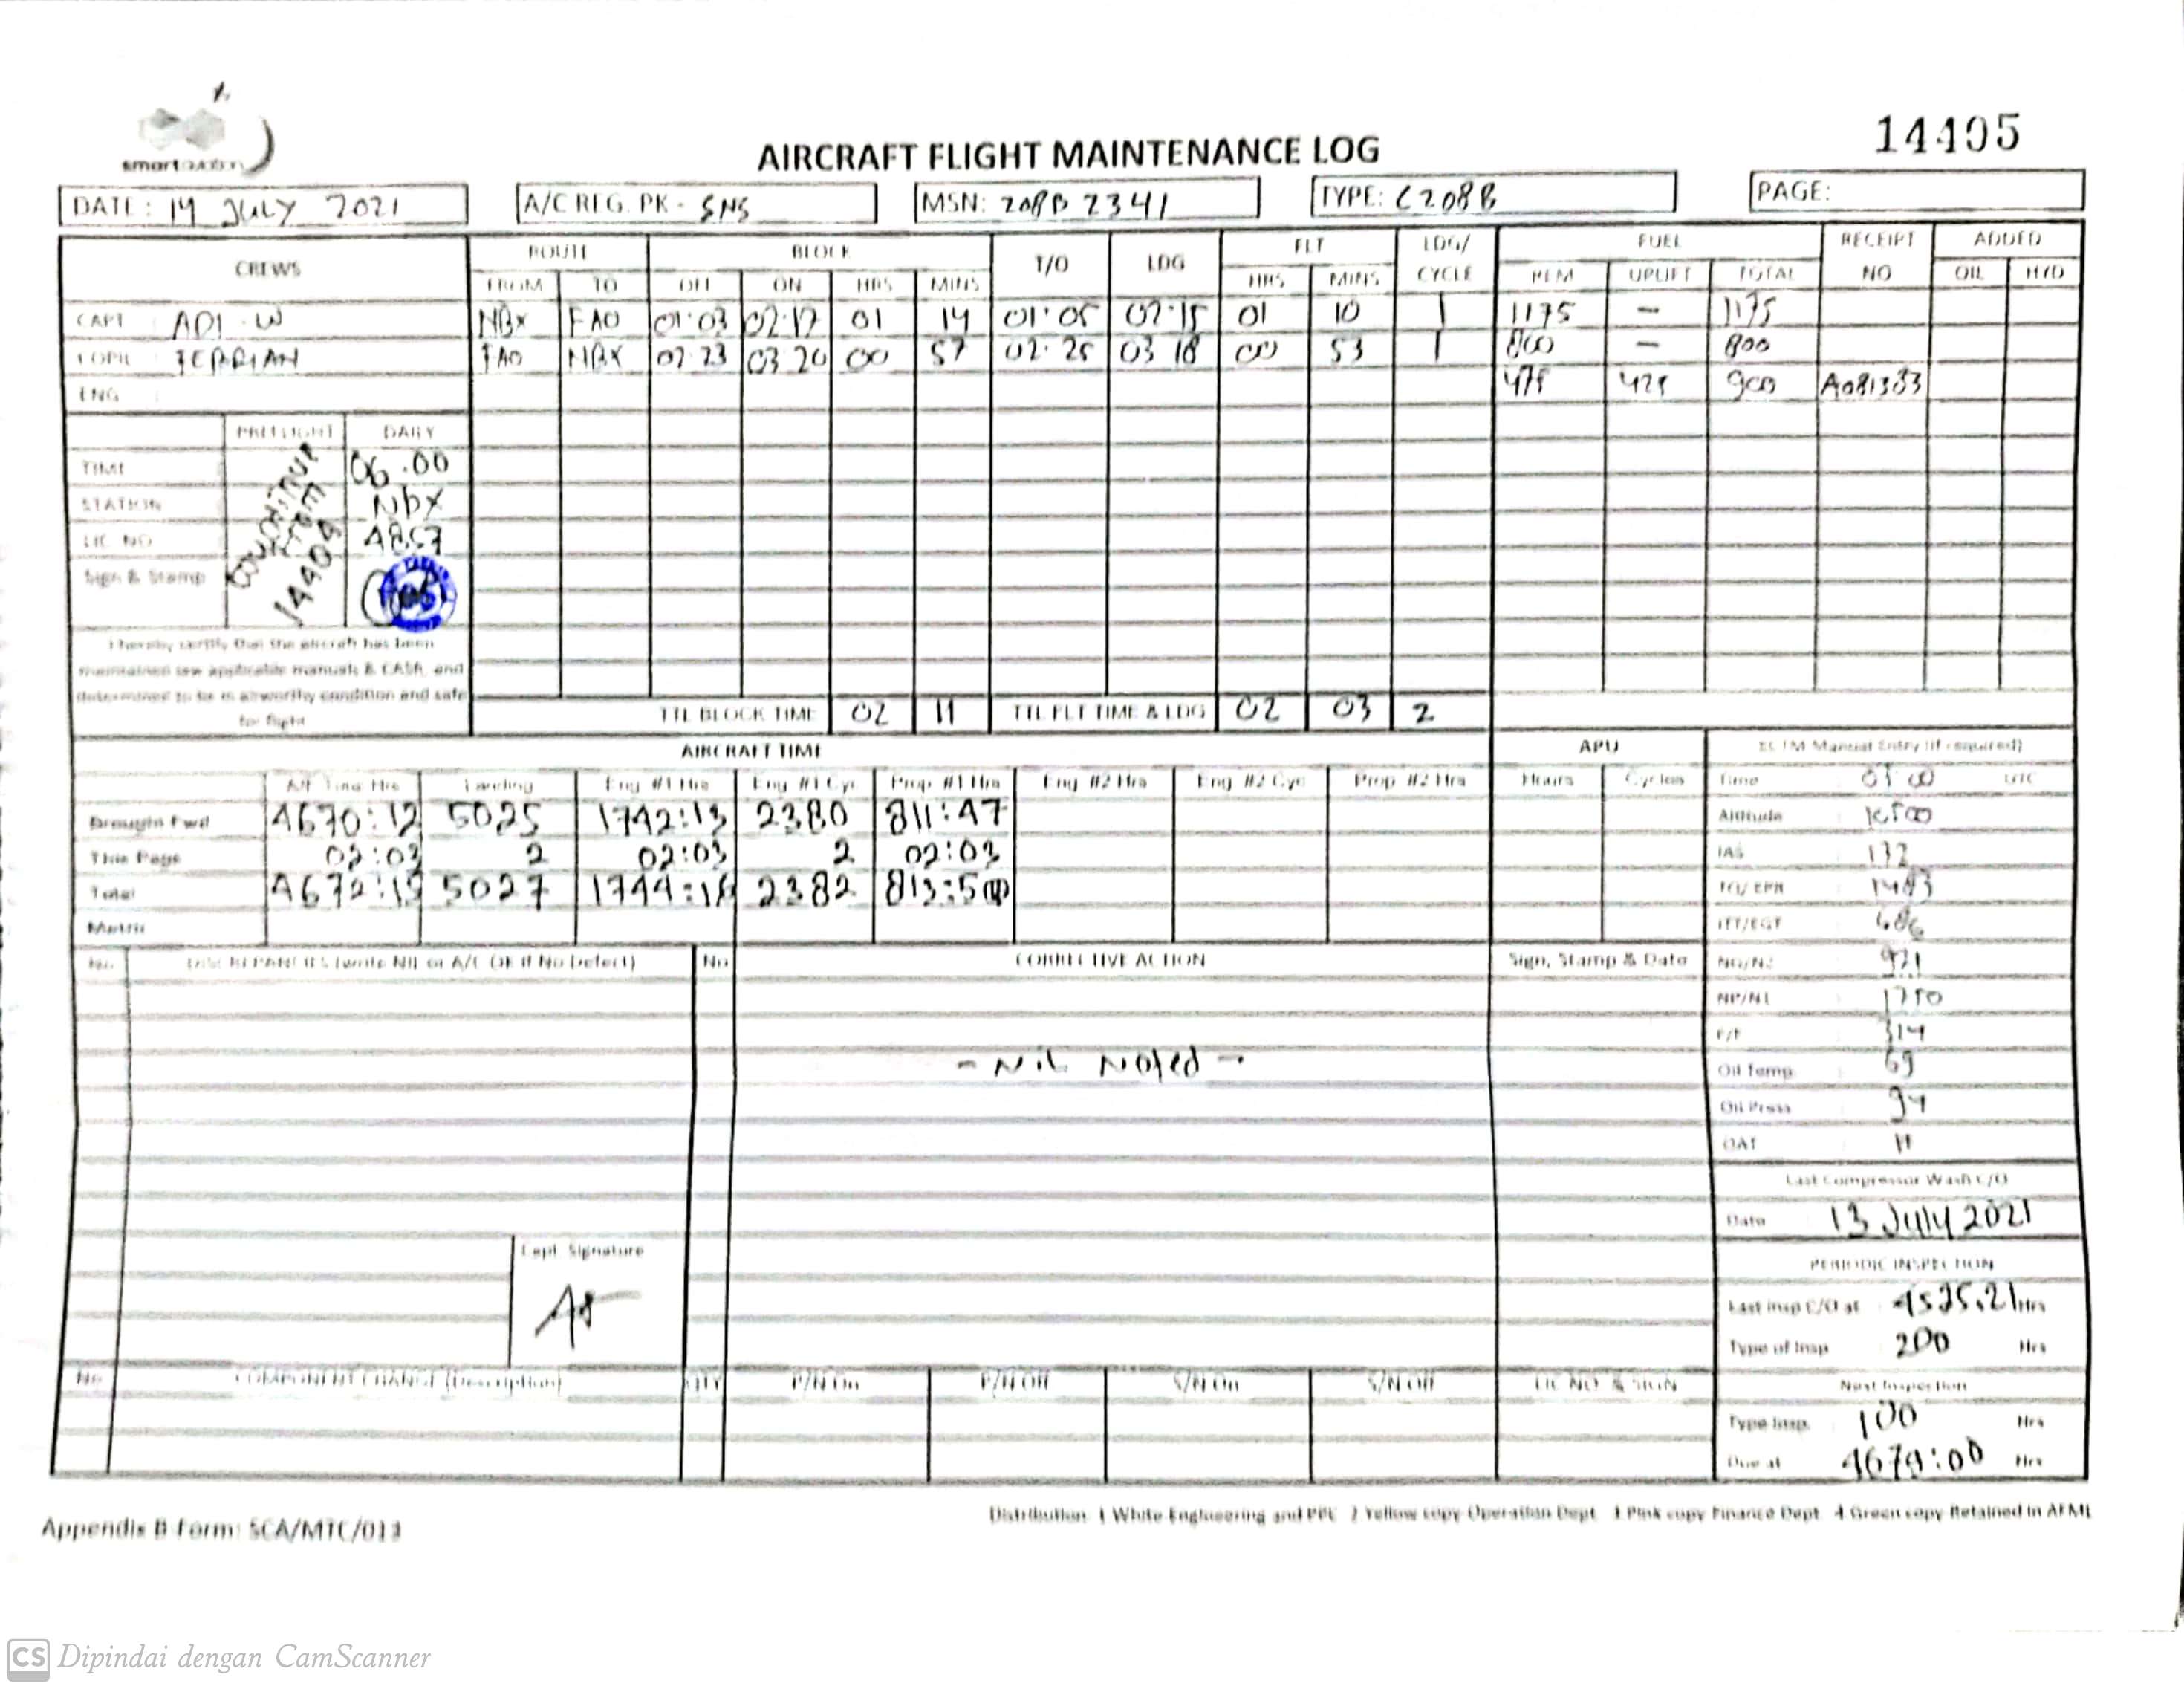 smart aviation
14405
AIRCRAFT FLIGHT MAINTENANCE LOG
DATE: 14 JULY 2021 A/C REG. PK - SNS MSN: 208B 2341 TYPE: C208B PAGE:
CREWS ROUTE BLOCK T/O LDG FLT LDG/ CYCLE FUEL RECEIPT NO ADDED
FROM TO OFF ON HRS MINS HRS MINS REM UPLIFT TOTAL OIL HYD
CAPT ADI . W NBX FAO 01:03 02:17 01 14 01:05 02:15 01 10 1 1175 - 1175
COPIL FEBRIAN FAO NBX 02 23 03 20 00 57 02:25 03 18 00 53 1 800 - 800
ENG 475 425 900 A081383
PREFLIGHT DAILY
TIME 06.00
STATION NBX
LIC NO 4857
Sign & Stamp
FROM
14404
I hereby certify that the aircraft has been
maintained iaw applicable manuals & CASR, and
determined to be in airworthy condition and safe
for flight
TTL BLOCK TIME 02 11 TTL FLT TIME & LDG 02 03 2
AIRCRAFT TIME APU ECTM Manual Entry (if required)
A/F Time Hrs Landing Eng #1 Hrs Eng #1 Cyc Prop #1 Hrs Eng #2 Hrs Eng #2 Cyc Prop #2 Hrs Hours Cycles Time UTC
Brought Fwd 4670:12 5025 1742:13 2380 811:47 Altitude
This Page 02:03 2 02:03 2 02:03 IAS 172
Total 4672:15 5027 1744:16 2382 813:50 TQ/ EPR
Metric ITT/EGT 686
No DISCREPANCIES (write Nil or A/C OK if No Defect) No CORRECTIVE ACTION Sign, Stamp & Date NG/N2 921
NP/N1 1750
F/F 314
- Nil Noted -
Oil Temp 69
Oil Press 94
OAT 11
Last Compressor Wash C/O
Date 13 July 2021
Capt. Signature
PERIODIC INSPECTION
Last Insp C/O at 4575.21 Hrs
Type of Insp 200 Hrs
No COMPONENT CHANGE (Description) QTY P/N On P/N Off S/N On S/N Off LIC NO. & SIGN Next Inspection
Type Insp. 100 Hrs
Due at 4679:00 Hrs
Distribution 1 White Engineering and PPC 2 Yellow copy Operation Dept 3 Pink copy Finance Dept 4 Green copy Retained in AFML
Appendix B Form: SCA/MTC/013
CS Dipindai dengan CamScanner